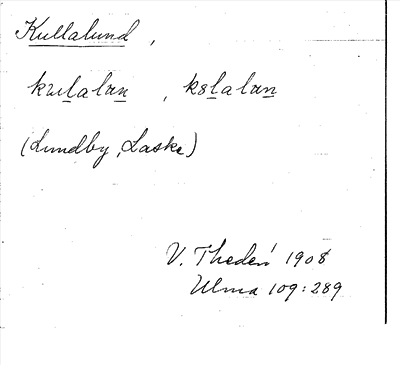 Kullalund,
kulalan, kslalan
(Lundby, Laske)
V. Thedén 1908
Ulma 109:289